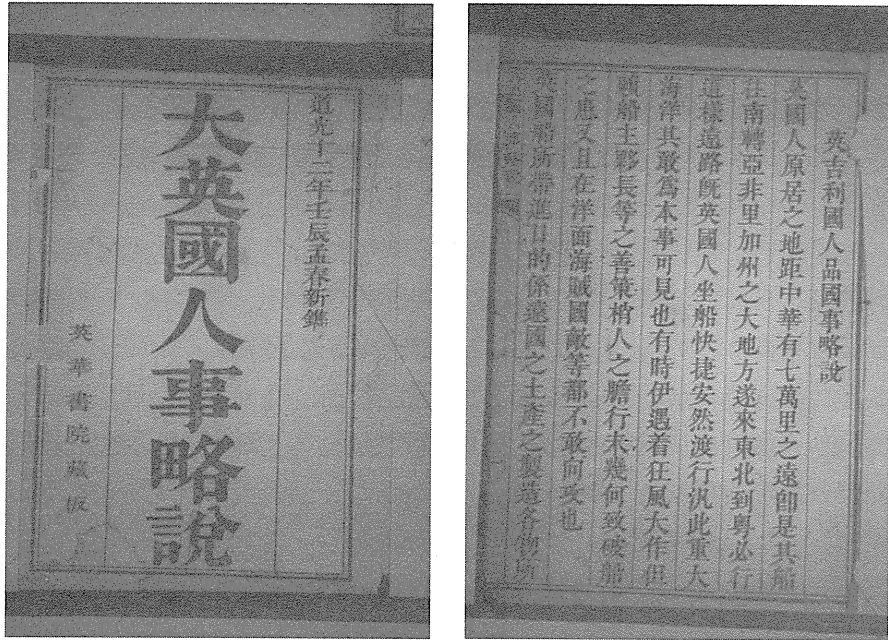 道光十二年壬辰孟春新鐫
大英國人事略說
英華書院藏板
英吉利國人品國事略說
英國人原居之地距中華有七萬里之遠卽是其船
往南轉亞非里加州之大地方遂來東北到粵必行
這樣遠路旣英國人坐船快捷安然渡行汎此重大
海洋其敢爲本事可見也有時伊遇着狂風大作但
賴船主夥長等之善策梢人之膽行未幾何致破船
之患又且在洋面海賊國敵等都不敢向攻也
英國船所帶進口的係遠國之土產之製造各物所